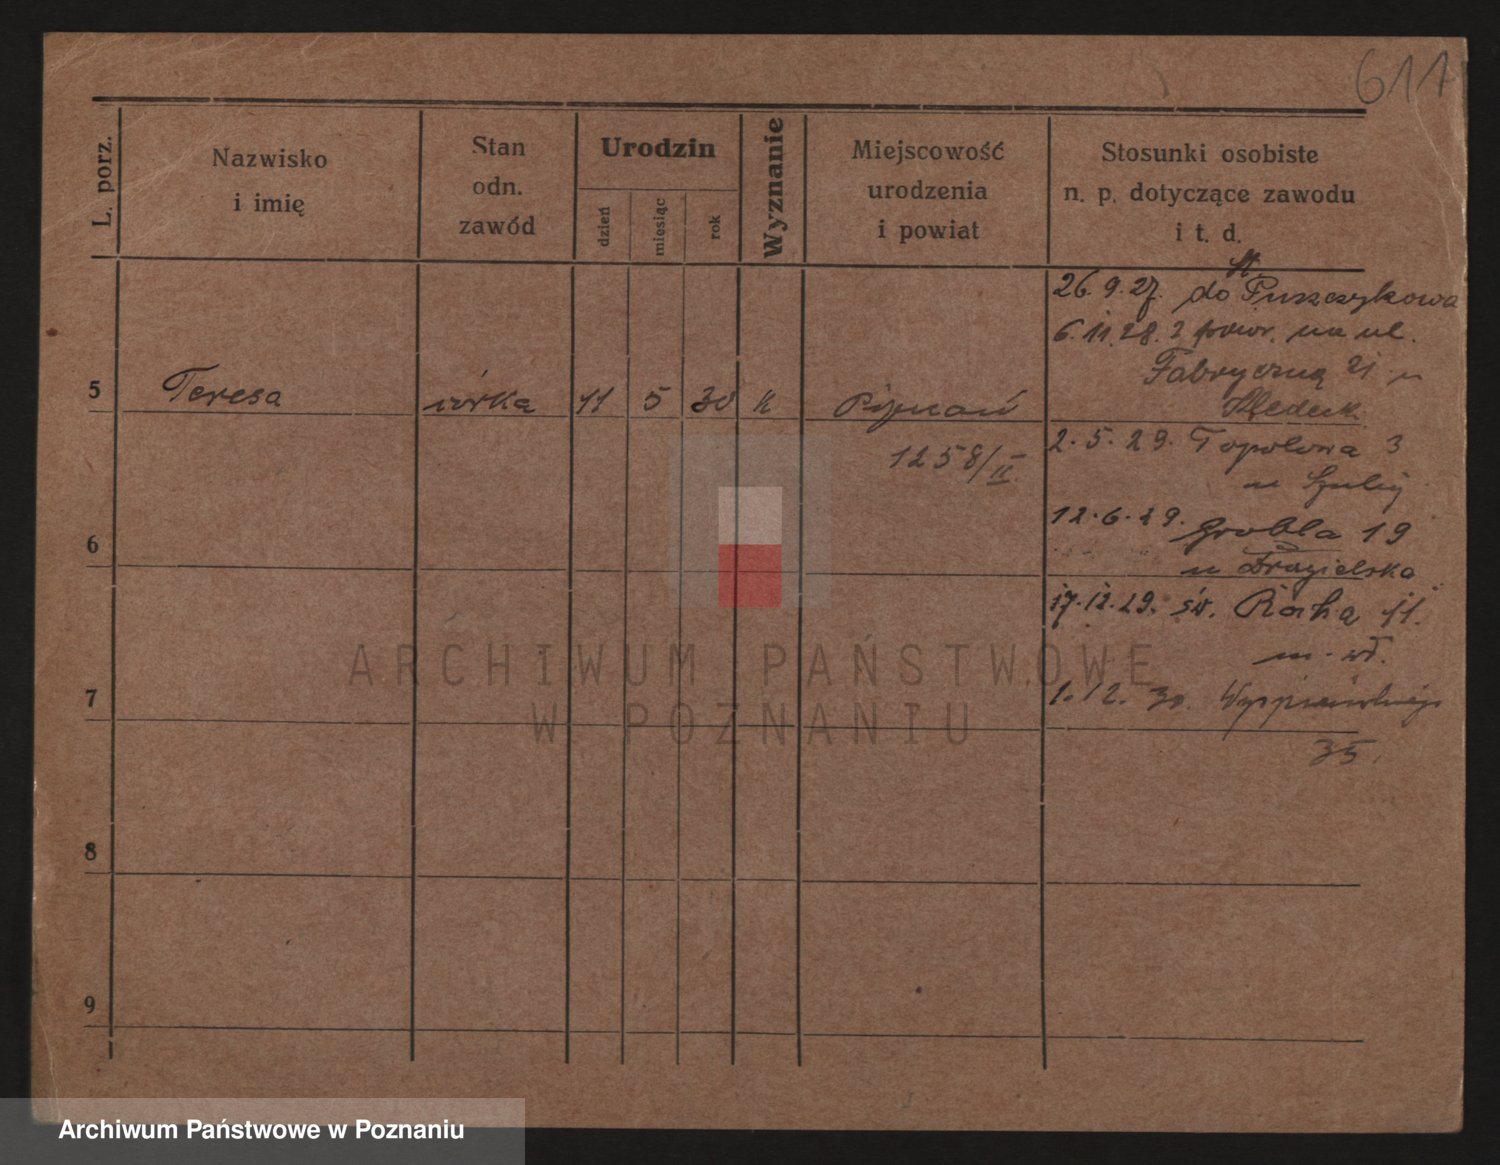 611
L. porz.
Nazwisko
i imię
Stan
odn.
zawód
Urodzin
dzień
miesiąc
rok
Wyznanie
Miejscowość
urodzenia
i powiat
Stosunki osobiste
n. p. dotyczące zawodu
i t. d.
26. 9. 27. do Puszczykowa
6. 11. 28. z powr. na ul.
Fabryczną 21 u
5 Teresa córka 11 5 30 k Poznań
1258/II.
2. 5. 29. Topolowa 3
u
12. 6. 29. Grobla 19
6
u
17. 12. 29. św. Rocha 11.
m. wł.
7
1. 12. 30. Wyspiańskiego
35.
8
9
ARCHIWUM PAŃSTWOWE
W POZNANIU
Archiwum Państwowe w Poznaniu